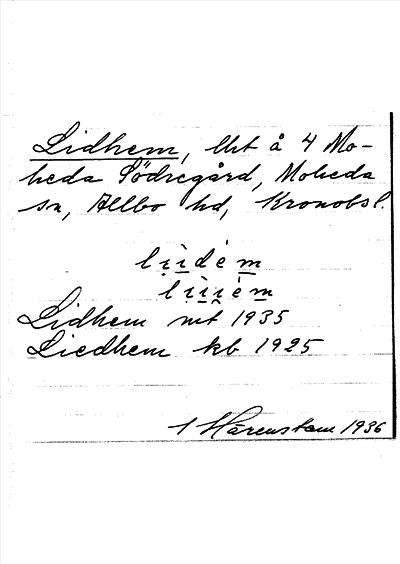 Lidhem, lht å 4 Mo-
heda Södregård, Moheda
sn, Allbo hd, Kronobs l.
Lidhem mt 1935
Liedhem kb 1925
1 Härenstam 1936